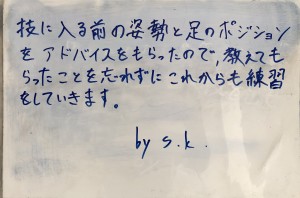 技に入る前の姿勢と足のポジション
をアドバイスをもらったので,教えても
らったことを忘れずにこれからも練習
をしていきます。
by s.k.